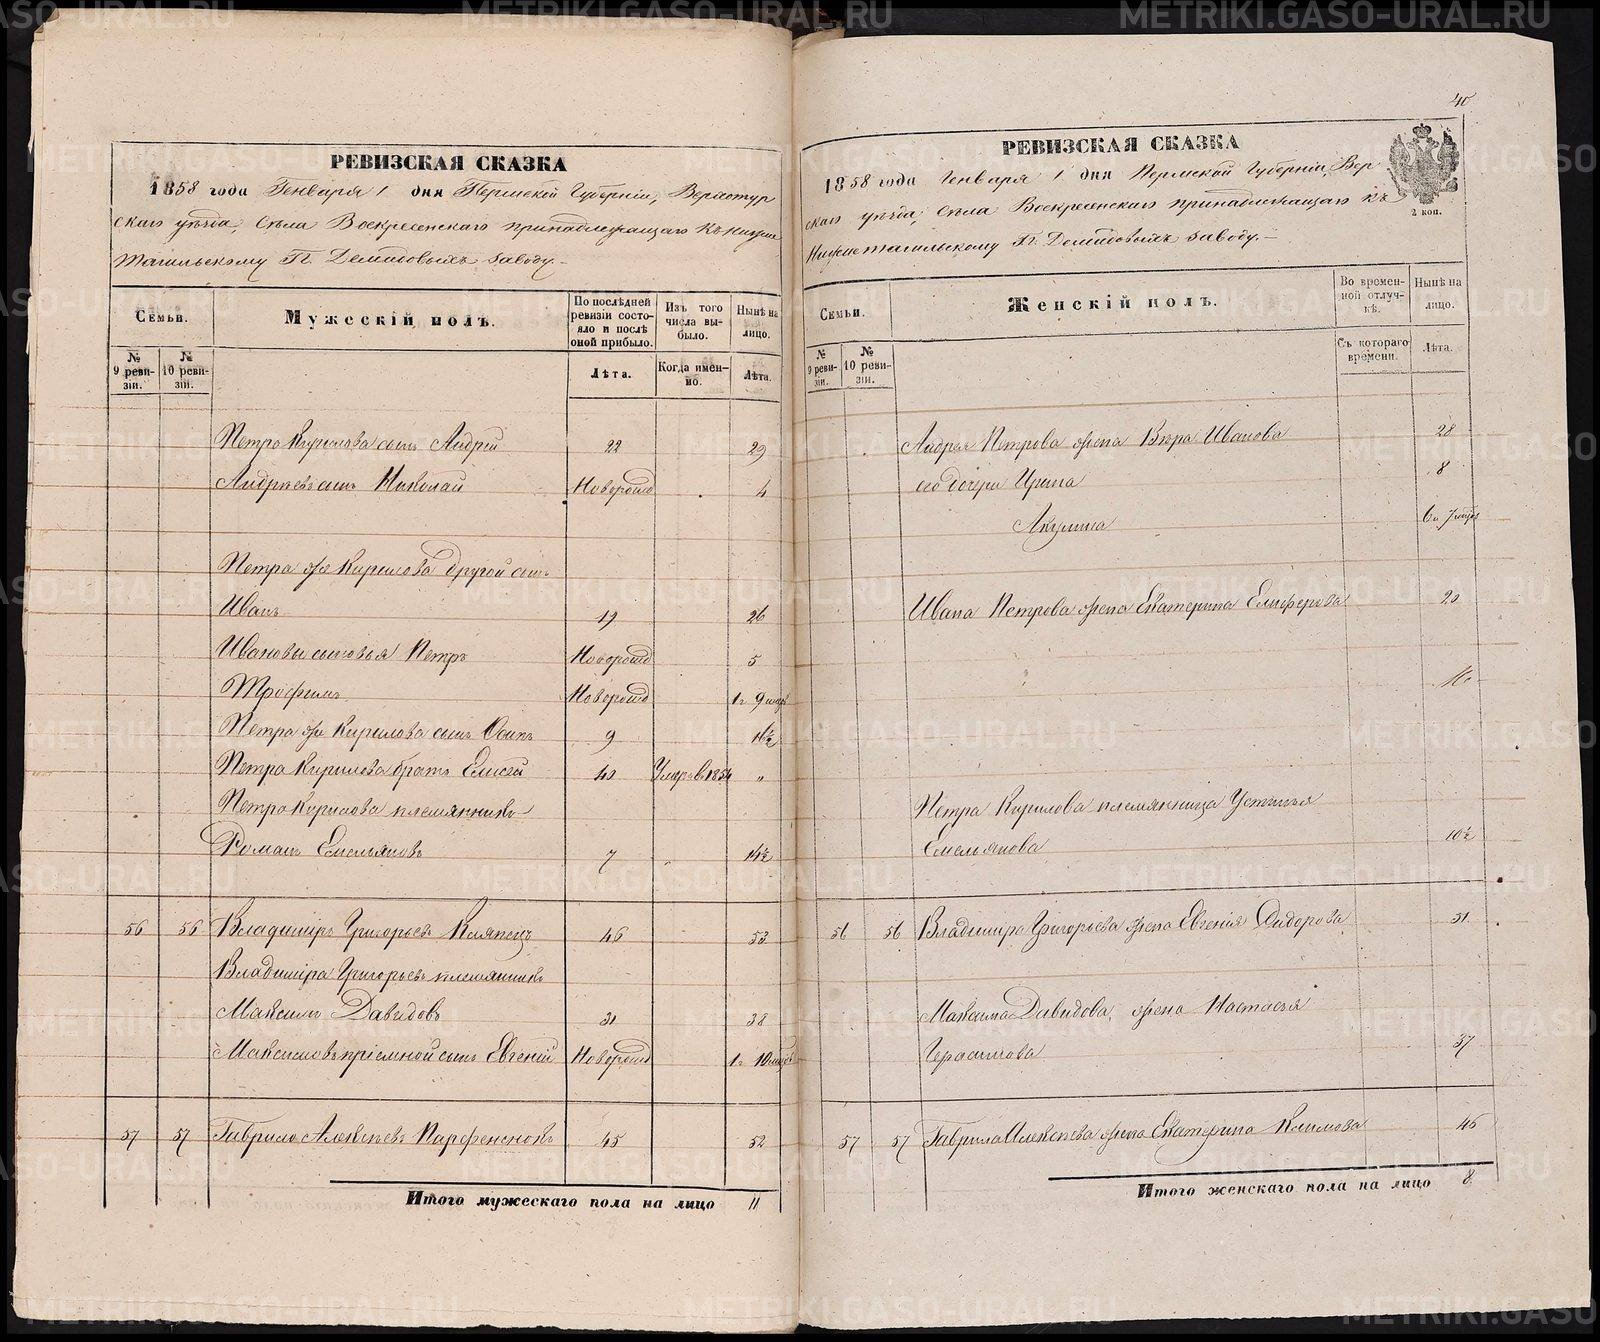 РЕВИЗСКАЯ СКАЗКА
1858 года Генваря 1 дня Пермской Губерніи, Верхотур
скаго уѣзда, Села Воскресенскаго принадлежащаго къ Нижне
тагильскому П. Демидовыхъ заводу.-
Семьи.
Мужескій полъ.
По послѣдней ревизіи состояло и послѣ оной прибыло.
Изъ того числа выбыло.
Нынѣ на лицо.
№ 9 ревизіи.
№ 10 ревизіи.
Лѣта.
Когда именно.
Лѣта.
Петра Кирилова сынъ Андрей 22 29
Андреевъ сынъ Николай Новорожд 4
Петра же Кирилова другой сынъ
Иванъ 19 26
Ивановы сыновья Петръ Новорожд 5
Трофимъ Новорожд 1 9
Петра же Кирилова сынъ Осипъ 9 16½
Петра Кирилова братъ Елисей 40 Умеръ в 1854 "
Петра Кирилова племянникъ
Романъ Емельяновъ 7 14½
56 56 Владиміръ Григорьевъ Кляпецъ 46 53
Владиміра Григорьева племянникъ
Максимъ Давыдовъ 31 38
Максимовъ пріемной сынъ Евгеній Новорожд 1 10
57 57 Гаврило Алексѣевъ Парфенёнокъ 45 52
Итого мужескаго пола на лицо 11
40
РЕВИЗСКАЯ СКАЗКА
1858 года Генваря 1 дня Пермской Губерніи, Вер
скаго уѣзда, Села Воскресенскаго принадлежащаго къ
Нижнетагильскому П. Демидовыхъ заводу.-
2 коп.
Семьи.
Женскій полъ.
Во временной отлучкѣ.
Нынѣ на лицо.
№ 9 ревизіи.
№ 10 ревизіи.
Съ котораго времени.
Лѣта.
Андрея Петрова жена Вѣра Иванова 28
его дочери Ирина 8
Акулина 6
Ивана Петрова жена Екатерина Елиферова
Петра Кирилова племянница Устинья
Емельянова 10½
56 56 Владиміра Григорьева жена Евгенія Сидорова 51
Максима Давыдова, жена Настасья
Герасимова 37
57 57 Гаврила Алексѣева жена Екатерина Климова 46
Итого женскаго пола на лицо 8
METRIKI.GASO-URAL.RU